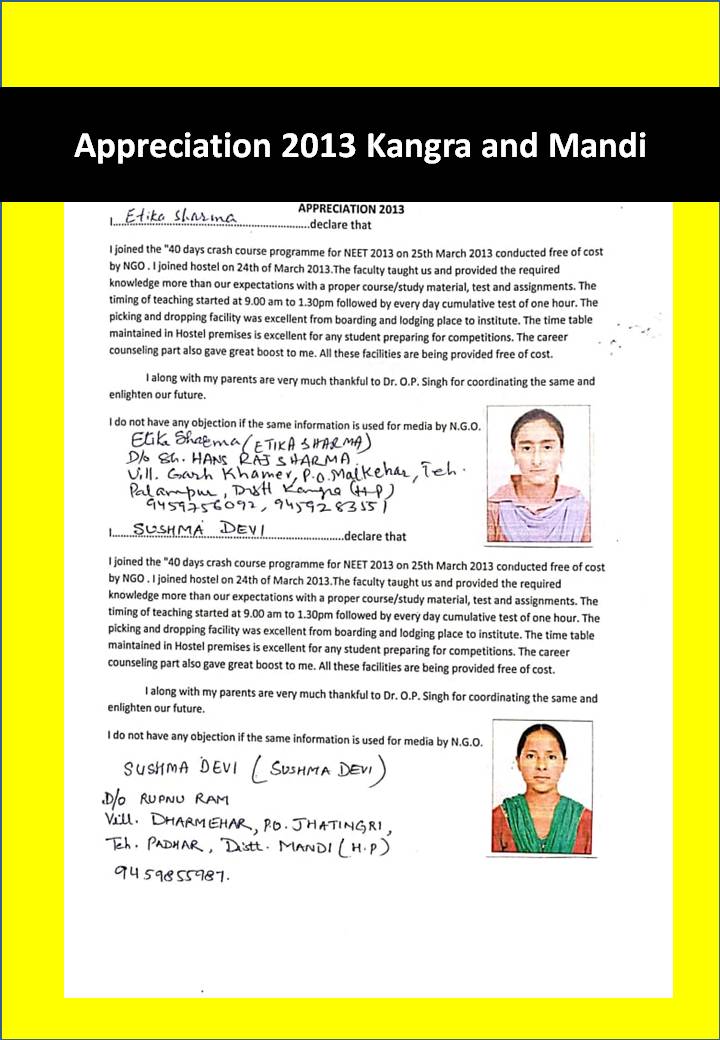 Appreciation 2013 Kangra and Mandi
APPRECIATION 2013
I....Etika Sharma....declare that
I joined the "40 days crash course programme for NEET 2013 on 25th March 2013 conducted free of cost
by NGO . I joined hostel on 24th of March 2013.The faculty taught us and provided the required
knowledge more than our expectations with a proper course/study material, test and assignments. The
timing of teaching started at 9.00 am to 1.30pm followed by every day cumulative test of one hour. The
picking and dropping facility was excellent from boarding and lodging place to institute. The time table
maintained in Hostel premises is excellent for any student preparing for competitions. The career
counseling part also gave great boost to me. All these facilities are being provided free of cost.
I along with my parents are very much thankful to Dr. O.P. Singh for coordinating the same and
enlighten our future.
I do not have any objection if the same information is used for media by N.G.O.
Etika Sharma (ETIKA SHARMA)
D/o Sh. HANS RAJ SHARMA
Vill. Garh Khamer, P.O. Malkehar, Teh.
Palampur, Distt Kangra (H-P)
9459756092, 9459283551
I....SUSHMA DEVI....declare that
I joined the "40 days crash course programme for NEET 2013 on 25th March 2013 conducted free of cost
by NGO . I joined hostel on 24th of March 2013.The faculty taught us and provided the required
knowledge more than our expectations with a proper course/study material, test and assignments. The
timing of teaching started at 9.00 am to 1.30pm followed by every day cumulative test of one hour. The
picking and dropping facility was excellent from boarding and lodging place to institute. The time table
maintained in Hostel premises is excellent for any student preparing for competitions. The career
counseling part also gave great boost to me. All these facilities are being provided free of cost.
I along with my parents are very much thankful to Dr. O.P. Singh for coordinating the same and
enlighten our future.
I do not have any objection if the same information is used for media by N.G.O.
SUSHMA DEVI (SUSHMA DEVI)
D/o RUPNU RAM
Vill. DHARMEHAR, PO. JHATINGRI,
Teh. PADHAR, Distt. MANDI (H.P)
9459855987.